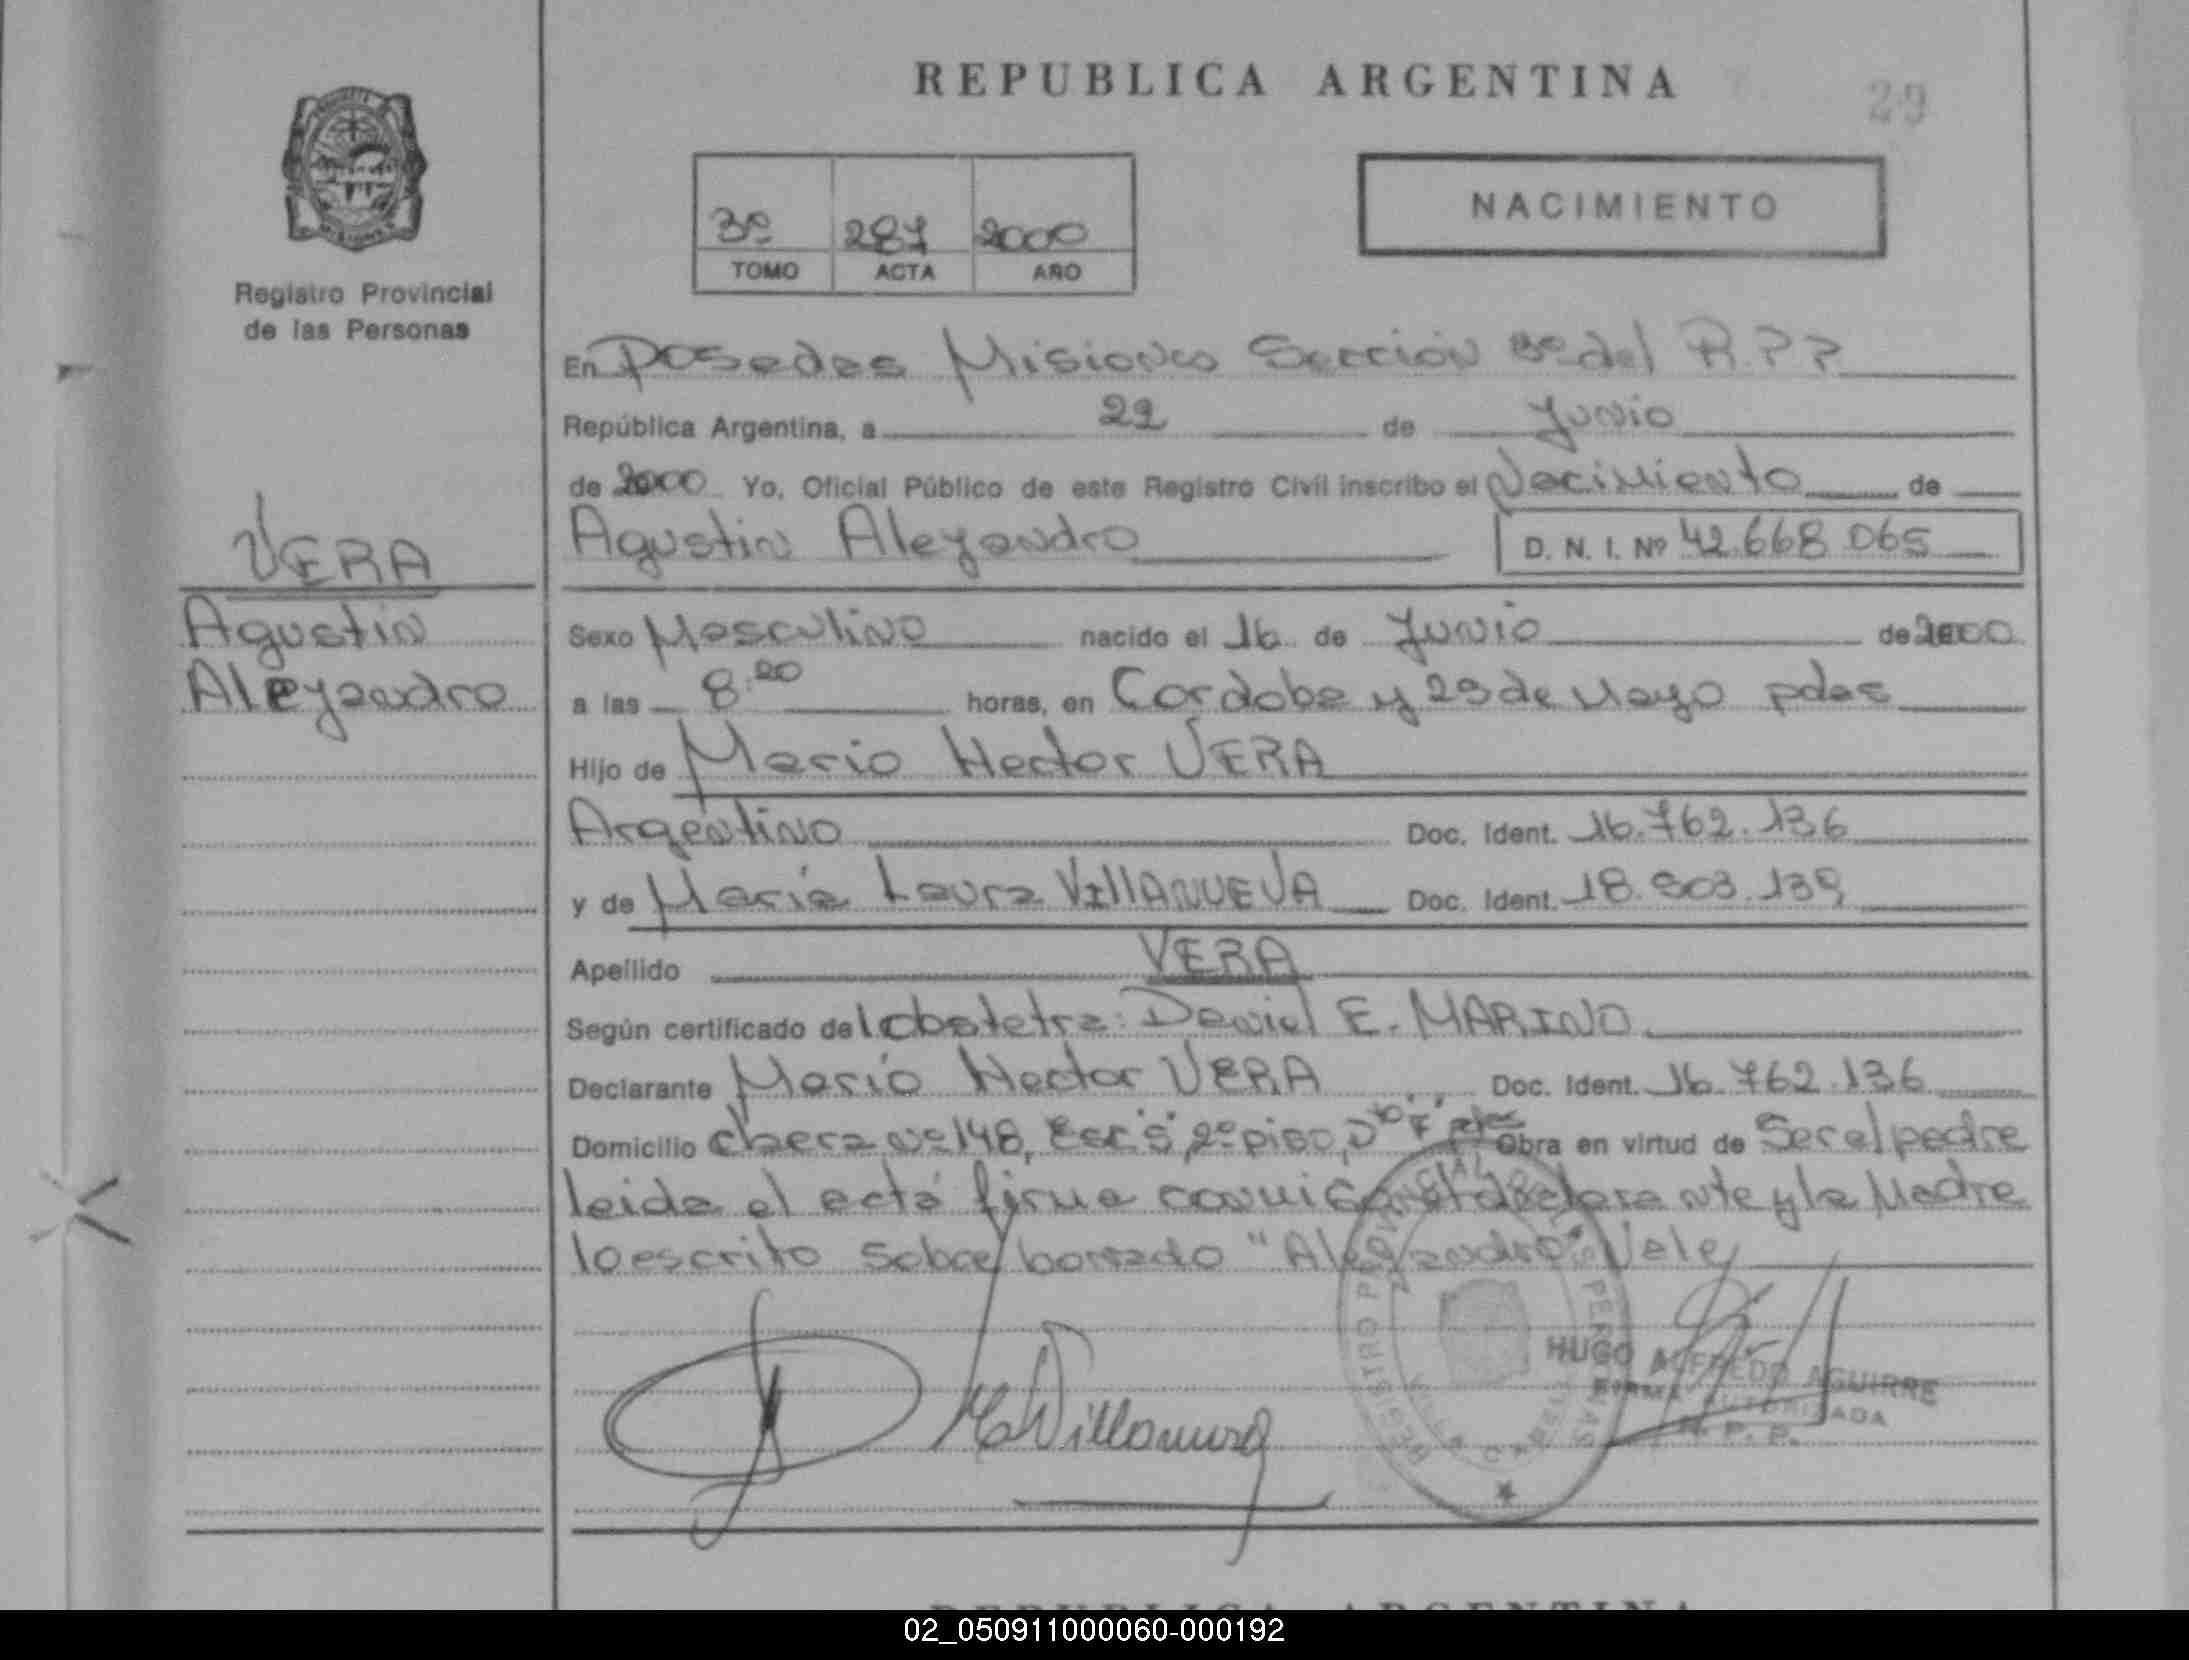 REPUBLICA ARGENTINA
29
3º 287 2000
TOMO ACTA AÑO
NACIMIENTO
MISIONES
Registro Provincial
de las Personas
En Posadas Misiones Sección 3º del R.P.P.
República Argentina, a 22 de Junio
de 2000 Yo, Oficial Público de este Registro Civil inscribo el Nacimiento de
Agustin Alejandro D. N. I. Nº 42.668.065
VERA
Agustin
Alejandro
Sexo Masculino nacido el 16 de Junio de 2000
a las 8:20 horas, en Cordoba y 25 de Mayo pdas
Hijo de Mario Hector VERA
Argentino Doc. Ident. 16.762.136
y de Maria Laura VIllANUEVA Doc. Ident. 18.803.139
Apellido VERA
Según certificado de lobstetra: Daniel E. MARINO
Declarante Mario Hector VERA Doc. Ident. 16.762.136
Domicilio chacra nº 148, Esc. 5, 2º piso, Dto "F" Obra en virtud de Ser el padre
leida el acta firma conmigo el declarante y la Madre
lo escrito sobre borrado "Alejandro" Vale
M Villanueva
REGISTRO PROVINCIAL DE LAS PERSONAS
HUGO ALFREDO AGUIRRE
FIRMA AUTORIZADA
R. P. P.
REPUBLICA ARGENTINA
02_050911000060-000192